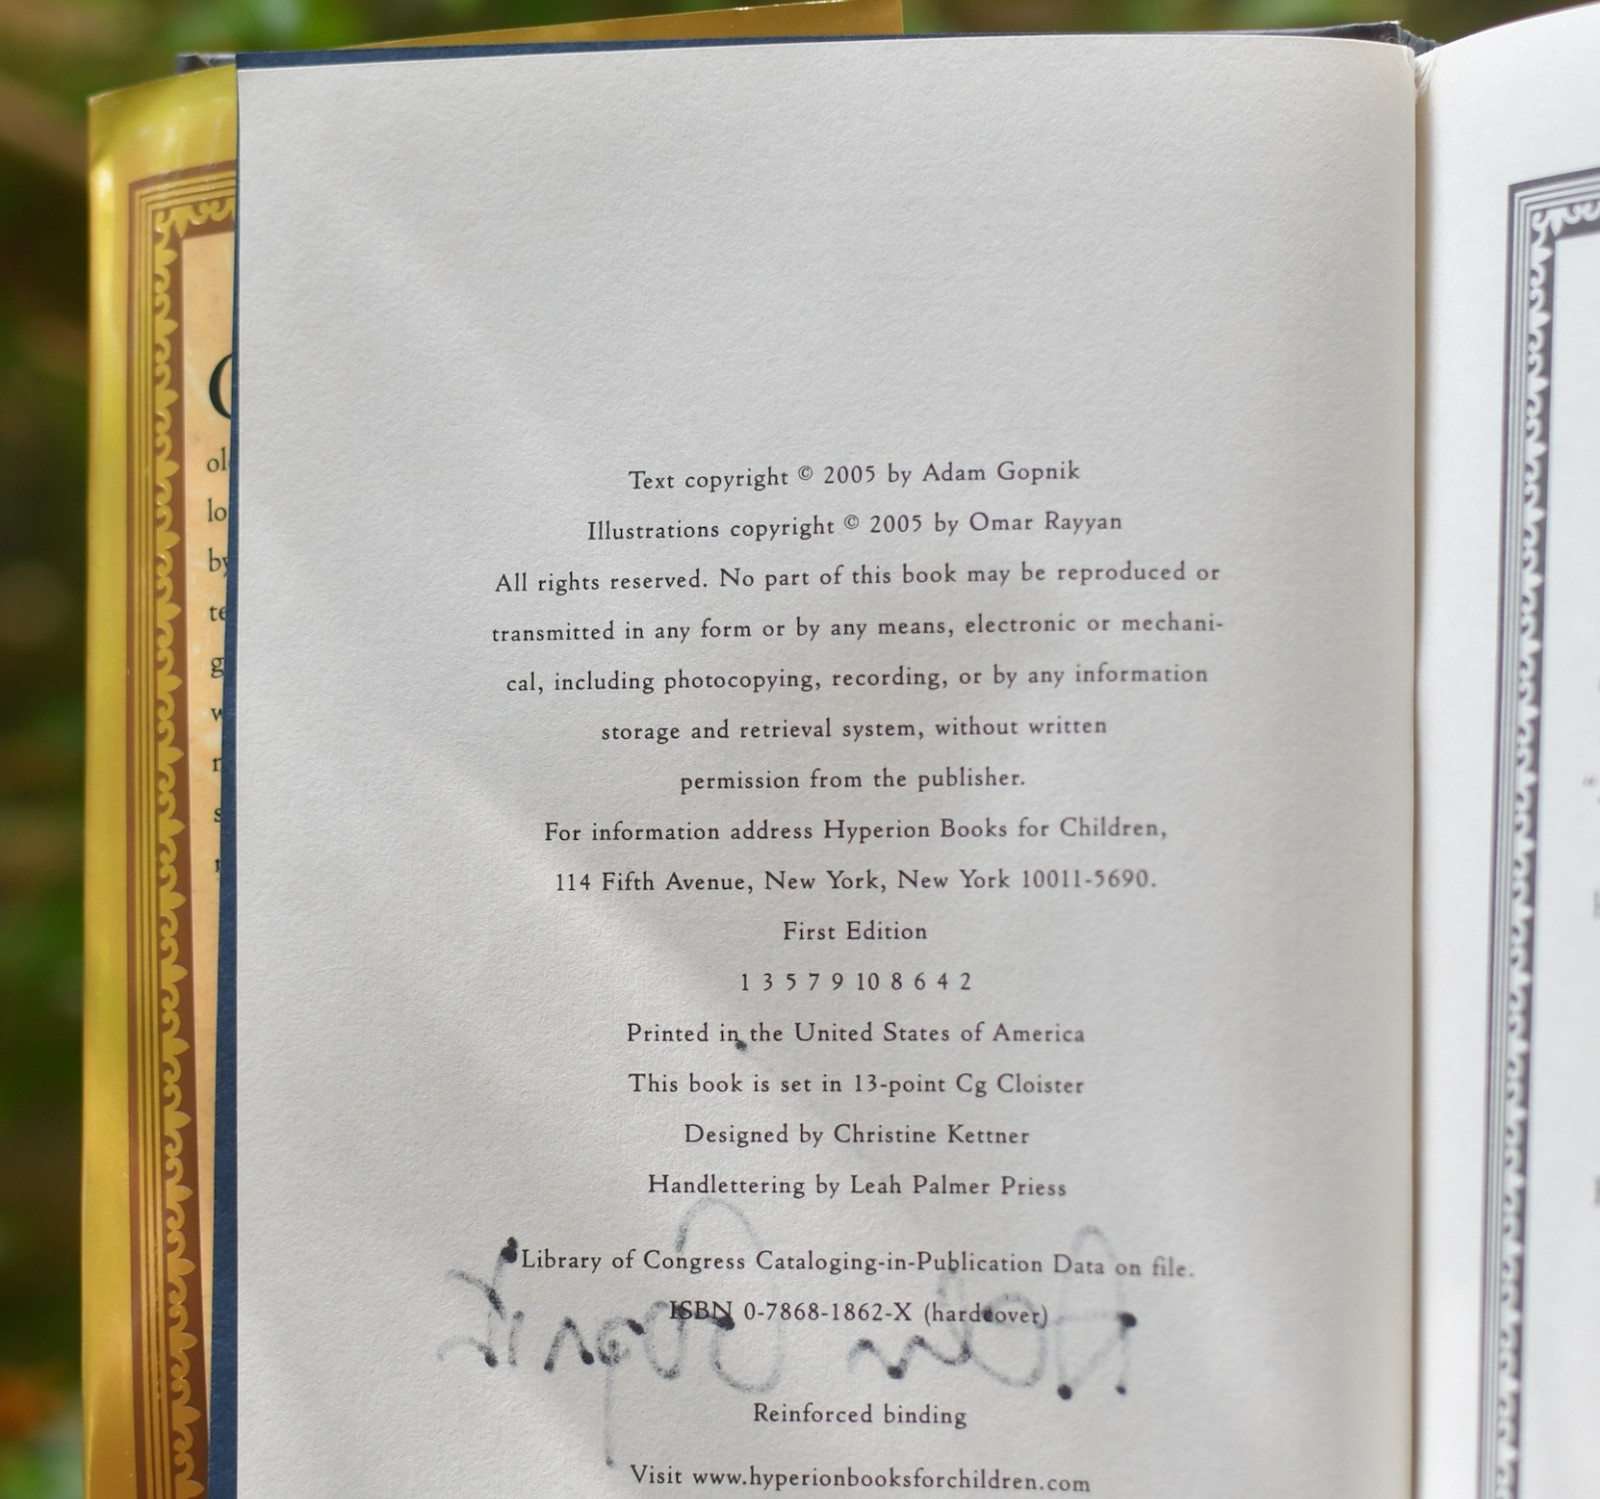 Text copyright © 2005 by Adam Gopnik
Illustrations copyright © 2005 by Omar Rayyan
All rights reserved. No part of this book may be reproduced or
transmitted in any form or by any means, electronic or mechani-
cal, including photocopying, recording, or by any information
storage and retrieval system, without written
permission from the publisher.
For information address Hyperion Books for Children,
114 Fifth Avenue, New York, New York 10011-5690.
First Edition
1 3 5 7 9 10 8 6 4 2
Printed in the United States of America
This book is set in 13-point Cg Cloister
Designed by Christine Kettner
Handlettering by Leah Palmer Priess
Library of Congress Cataloging-in-Publication Data on file.
ISBN 0-7868-1862-X (hardcover)
Reinforced binding
Visit www.hyperionbooksforchildren.com